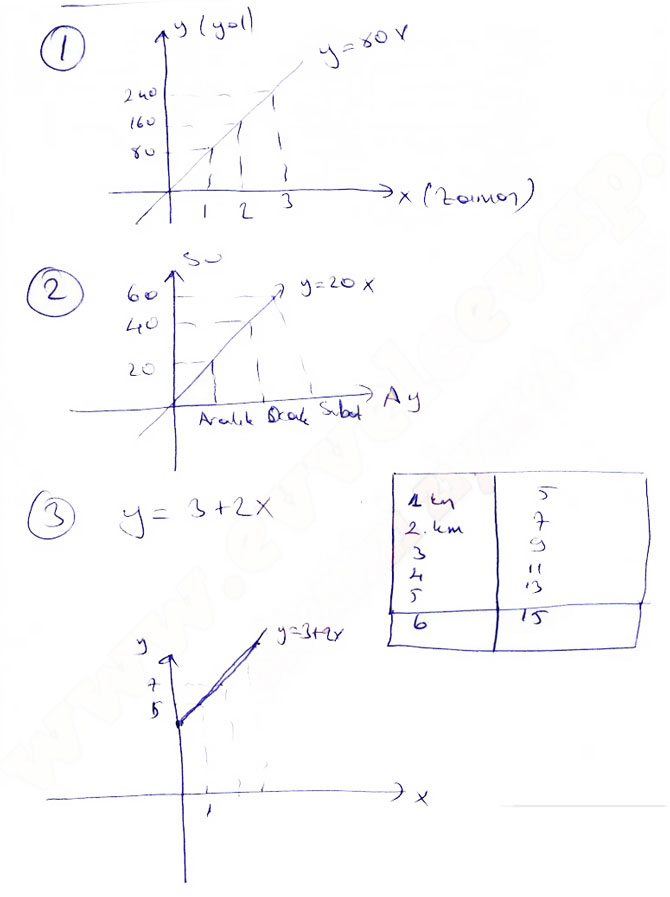 1
y (yol)
y = 80x
240
160
80
1 2 3
x (Zaman)
2
Su
y = 20x
60
40
20
Aralık Ocak Şubat
Ay
3
y = 3+2x
1 km 5
2. km 7
3 9
4 11
5 13
6 15
y
y=3+2x
7
5
1
x